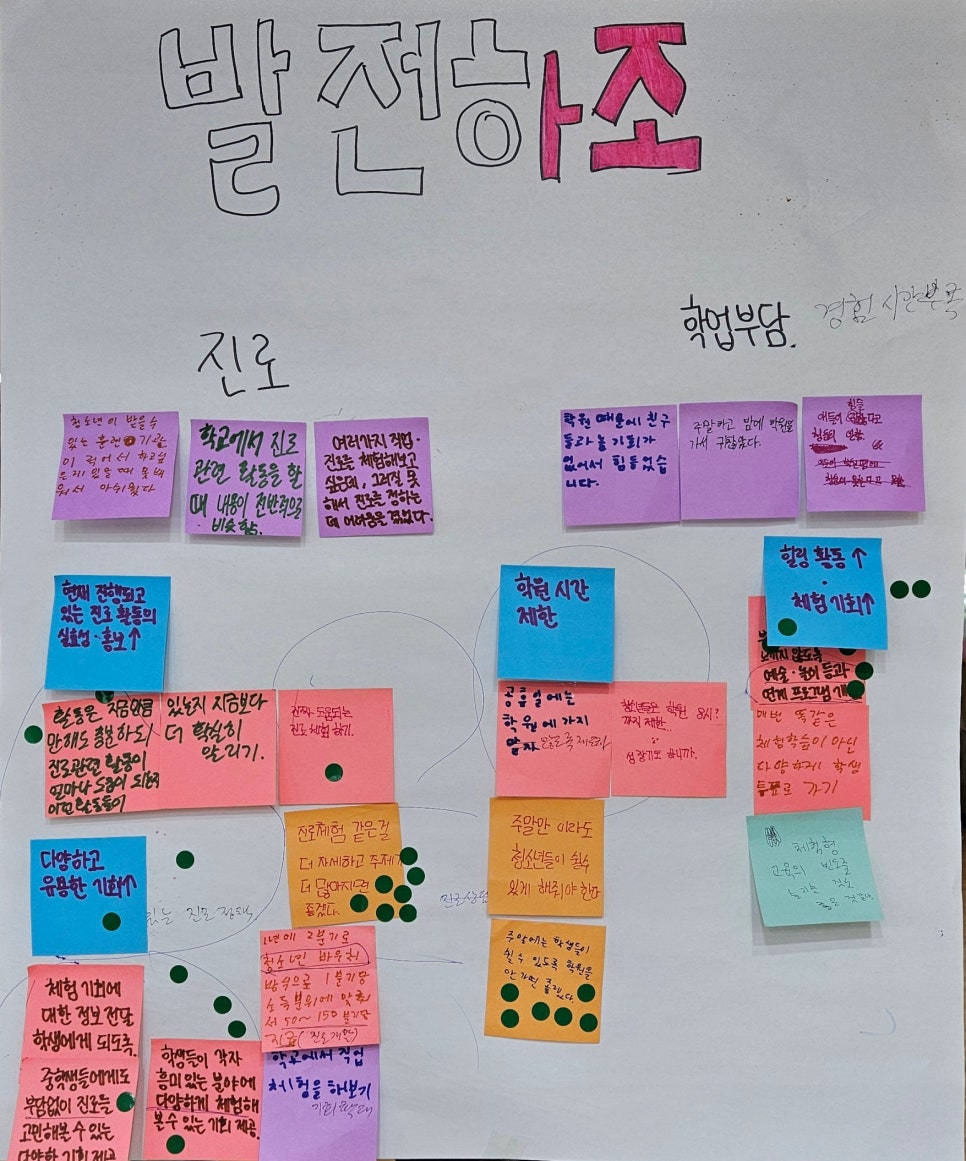 발전하조
진로
학업부담.
경험 시간부족
청소년이 받을 수
있는 훈련 기관
이 적어서 학교
때 못배
워서 아쉬웠다
학교에서 진로
관련 활동을 할
때 내용이 전반적으로
비슷함.
여러가지 직업·
진로를 체험해보고
싶은데, 그러질 못
해서 진로를 정하는
데 어려움을 겪었다.
학원 때문에 친구
들과 놀 기회가
없어서 힘들었습
니다.
주말하고 밤에 학원을
가서
힘들
현재 진행되고
있는 진로 활동의
실효성·홍보↑
활동은 지금만큼
만해도 충분하되
진로관련 활동이
얼마나 도움이 되는지
이런 활동들이
있는지 지금보다
더 확실히
알리기.
진짜 도움되는
진로 체험 하기.
학원 시간
제한
공휴일에는
학원에 가지
말자
청소년들은 학원 8시?
까지 제한..
성장기도 합니까.
힐링 활동↑
·
체험 기회↑
않도록
예술·놀이 등과
연계 프로그램 개
매번 똑같은
체험학습이 아닌
다양하게 학생
투표로 가기
체학형
교육의 빈도를
늘리는 것도
다양하고
유용한 기회↑
진로체험 같은걸
더 자세하고 주제가
더 많아지면
좋겠다.
진로상담
주말만 이라도
청소년들이 쉴수
있게 해줘야 한다
주말에는 학생들이
쉴 수 있도록 학원을
안가면 좋겠다.
체험 기회에
대한 정보 전달
학생에게 되도록.
중학생들에게도
부담없이 진로를
고민해볼 수 있는
다양한 기회 제공
학생들이 각자
흥미 있는 분야에
다양하게 체험해
볼 수 있는 기회 제공.
1년에 2분기로
청소년 바우처
방식으로 1분기당
소득분위에 맞춰
서 50~150 분기당
지급(진로개발)
학교에서 직업
체험을 해보기
기회확대